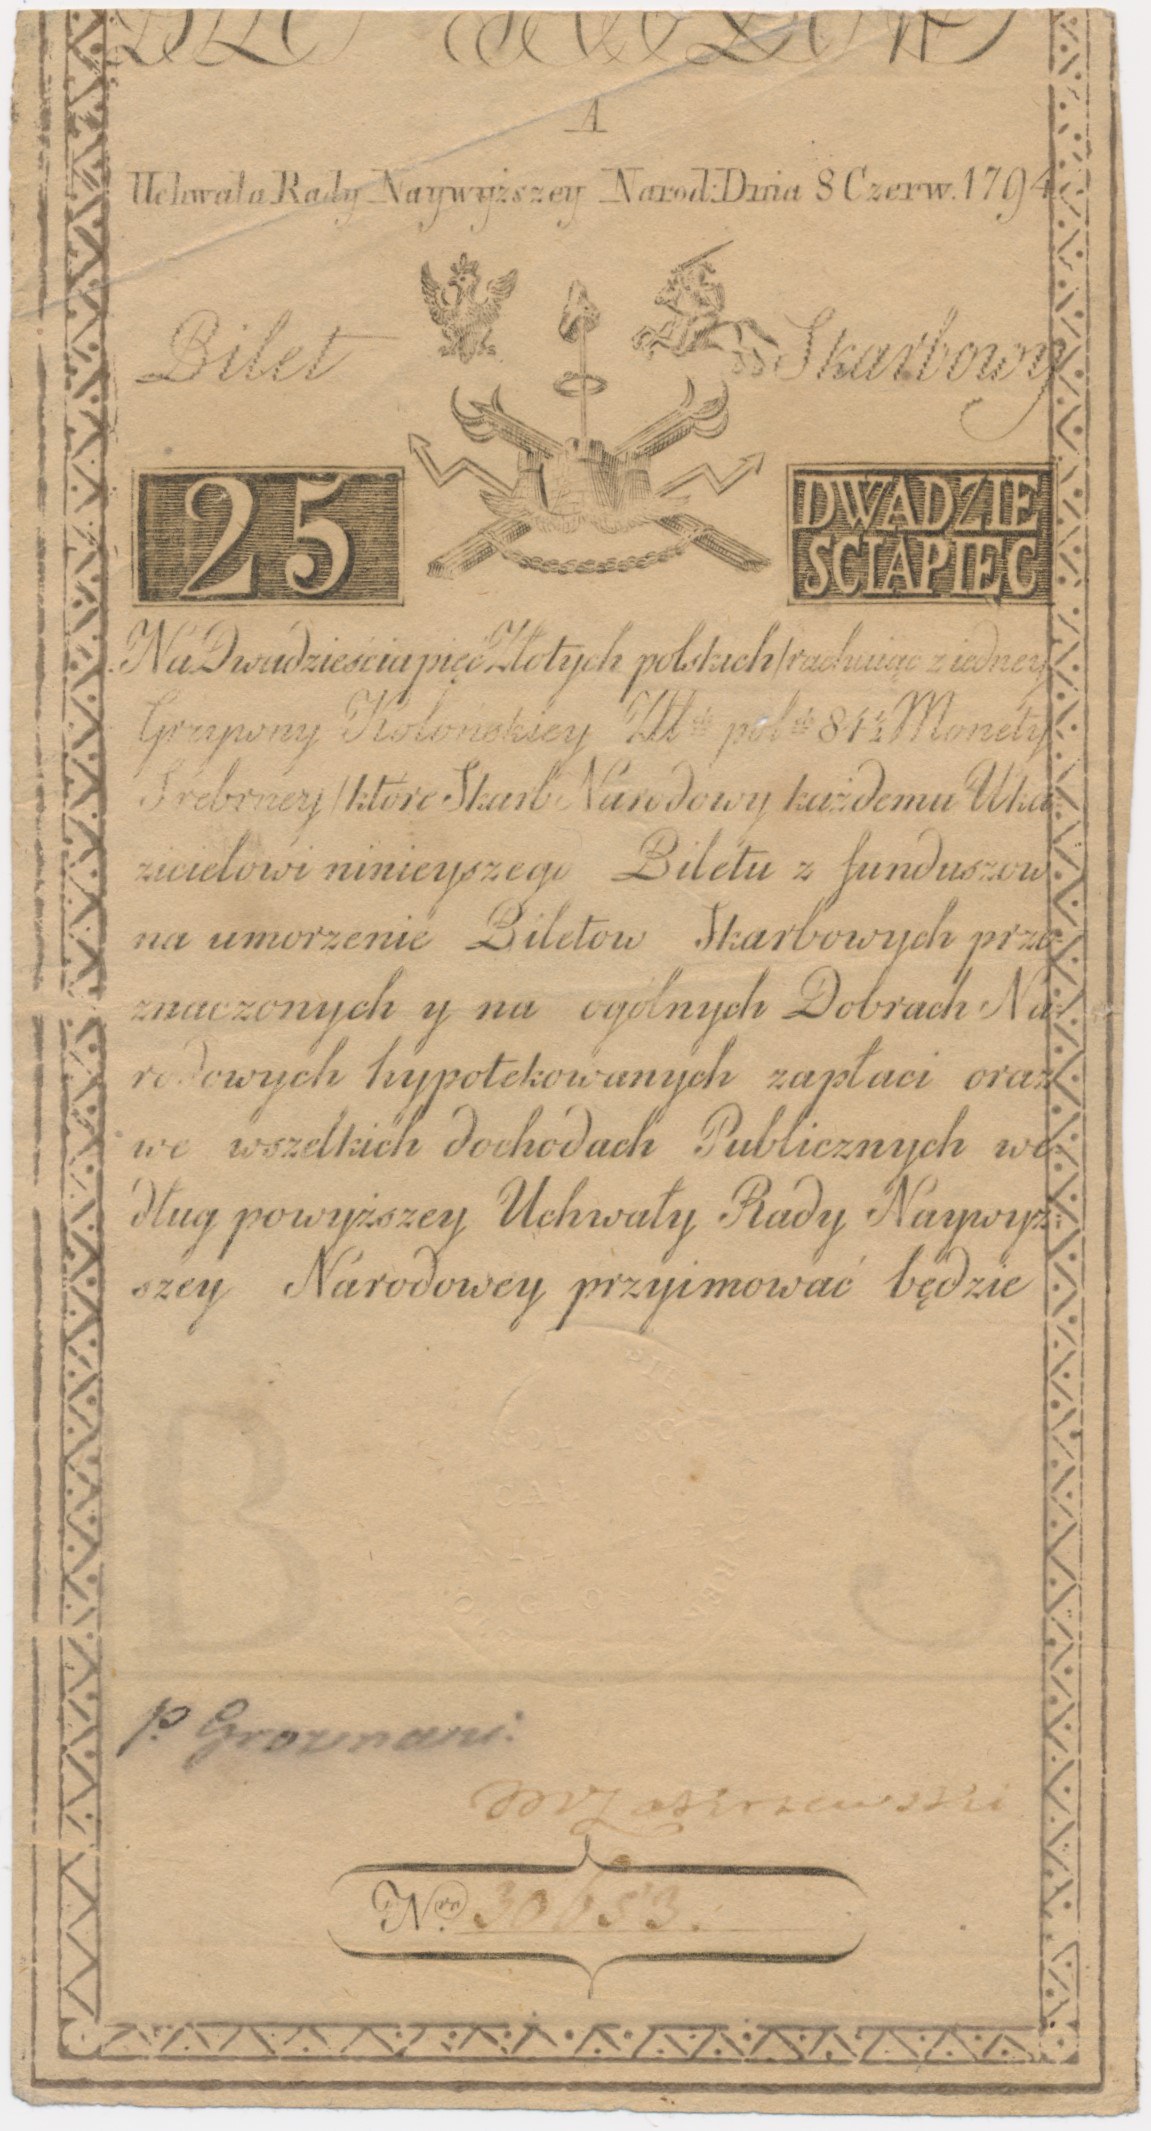 A
Uchwała Rady Naywyższey Narod: Dnia 8 Czerw. 1794
Bilet Skarbowy
25 DWADZIE
SCIAPIĘC
Na Dwadzieścia pięć Złotych polskich /rachuiąc z iedney
Grzywny Kolońskiey Zł pol 84½ Monety
Srebrney/ które Skarb Narodowy każdemu Uka
zicielowi ninieyszego Biletu z funduszow
na umorzenie Biletow Skarbowych prze
znaczonych y na ogólnych Dobrach Na
rodowych hypotekowanych zapłaci oraz
we wszelkich dochodach Publicznych we
dług powyższey Uchwały Rady Naywyż
szey Narodowey przyimować będzie
B S
p. Grozmani.
MZakrzewski
Nro 30653.